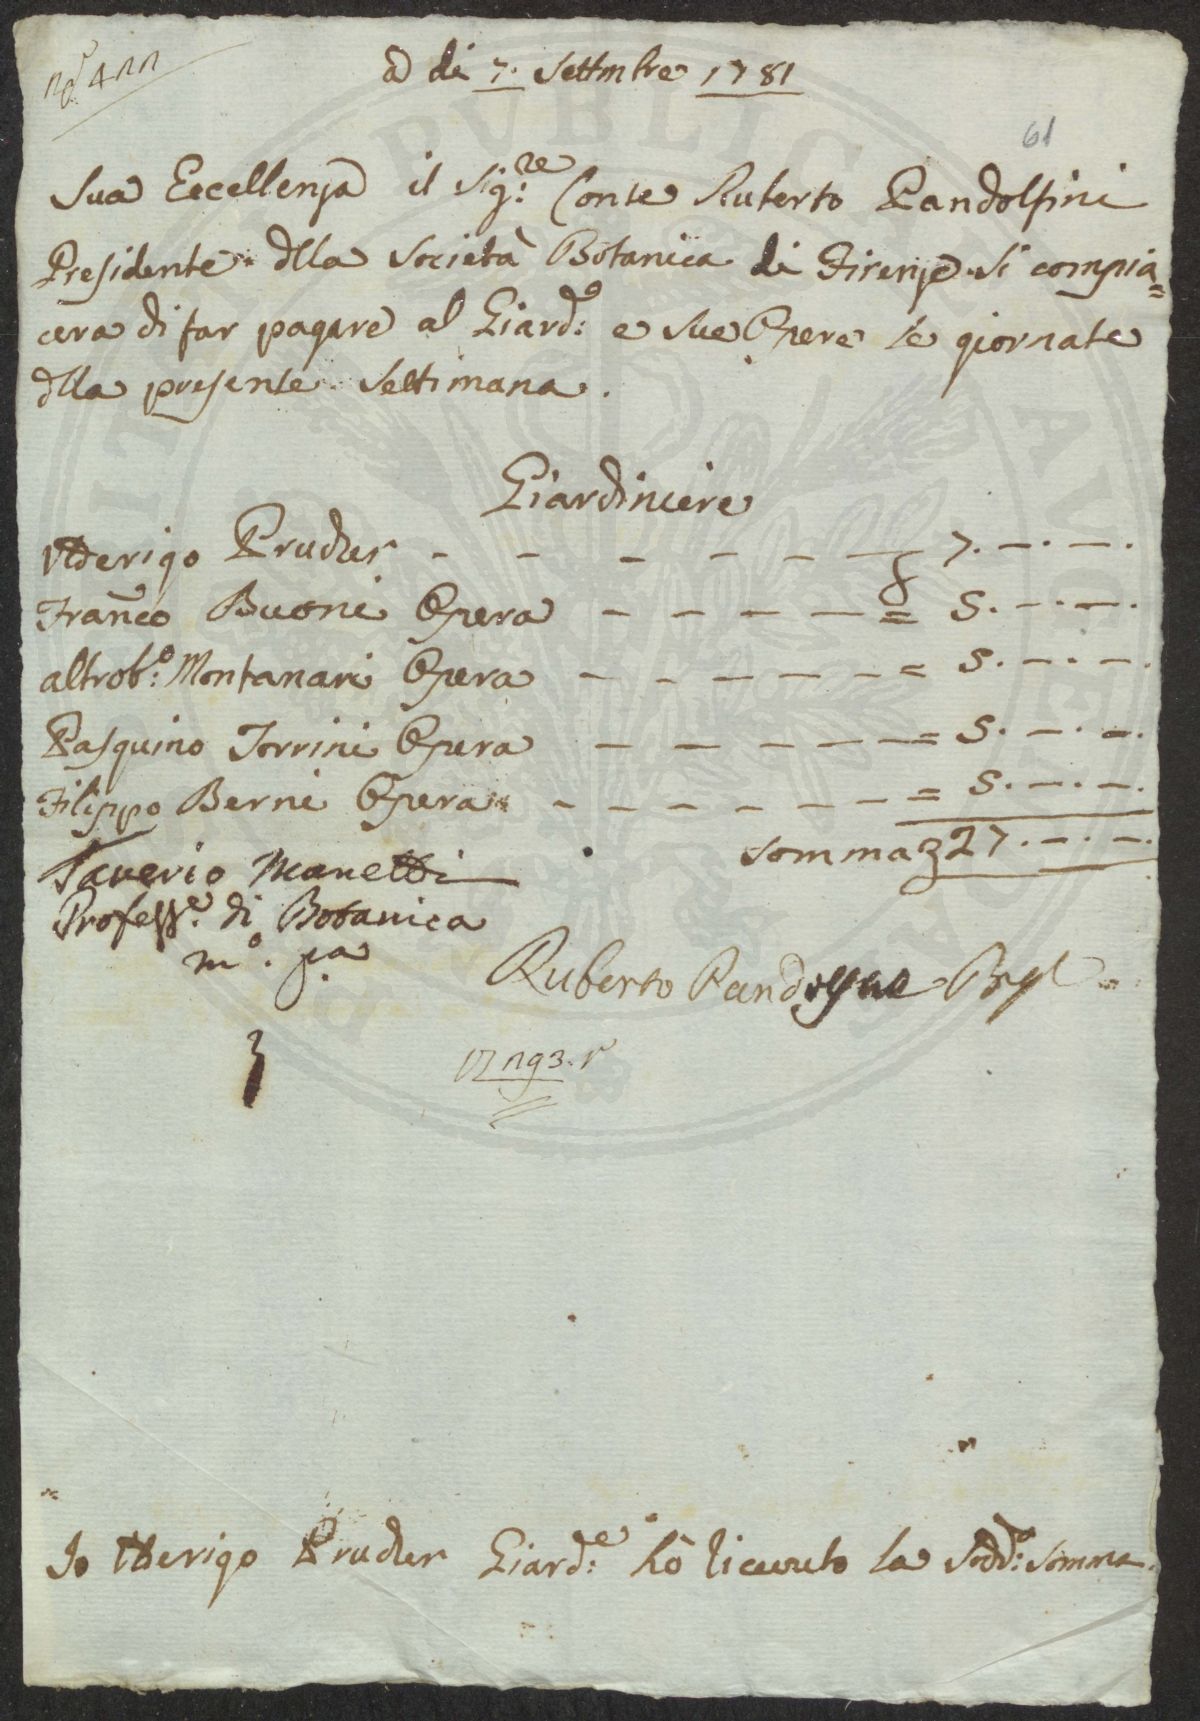 a di 7. Settmbre 1781
61
Sua Eccellenza il Sig:re Conte Ruberto Pandolfini
Presidente dlla Società Botanica di Firenze si compia=
cera di far pagare al Giard:e e sue Opere le giornate
dlla presente Settimana.
Giardiniere
Uderigo Pruder - - - - - — 7. — . — .
Franco Buoni Opera - - - - = 5. — . — .
altrob:o Montanari Opera - - - - - = 5. — . — .
Pasquino Torrini Opera - - - - = 5. — . — .
Filippo Berni Opera - - - - - = 5. — . — .
somma 27. — . — .
Saverio Manetti
Profess:e di Botanica
m:o p:a
Ruberto Pandolfini
Io Uderigo Pruder Giard:e hò riceuuto la Sudd:a Somma.